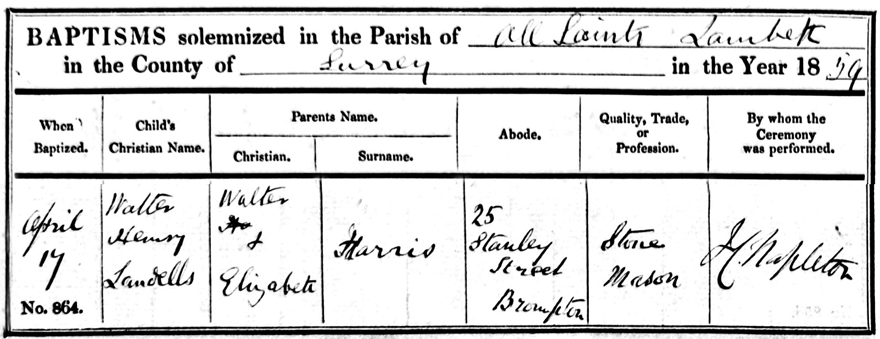 BAPTISMS solemnized in the Parish of All Saints Lambeth
in the County of Surrey in the Year 1859
When Baptized.
Child's Christian Name.
Parents Name.
Christian.
Surname.
Abode.
Quality, Trade, or Profession.
By whom the Ceremony was performed.
April
17
No. 864.
Walter
Henry
Landells
Walter
&
Elizabeth
Harris
25
Stanley
Street
Brompton
Stone
Mason
J C Napleton